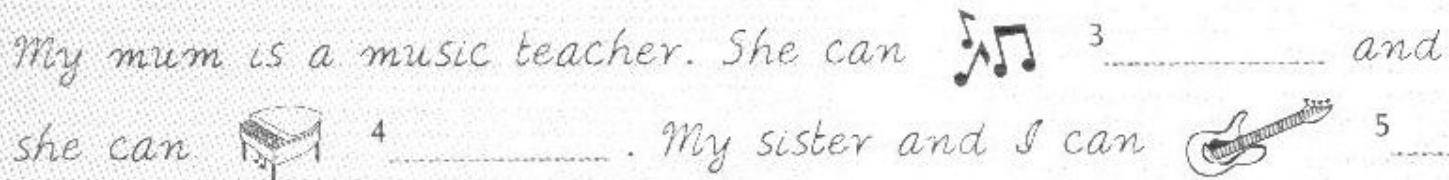 My mum is a music teacher. She can 3 ............ and
she can 4 ............ . My sister and I can 5 ......